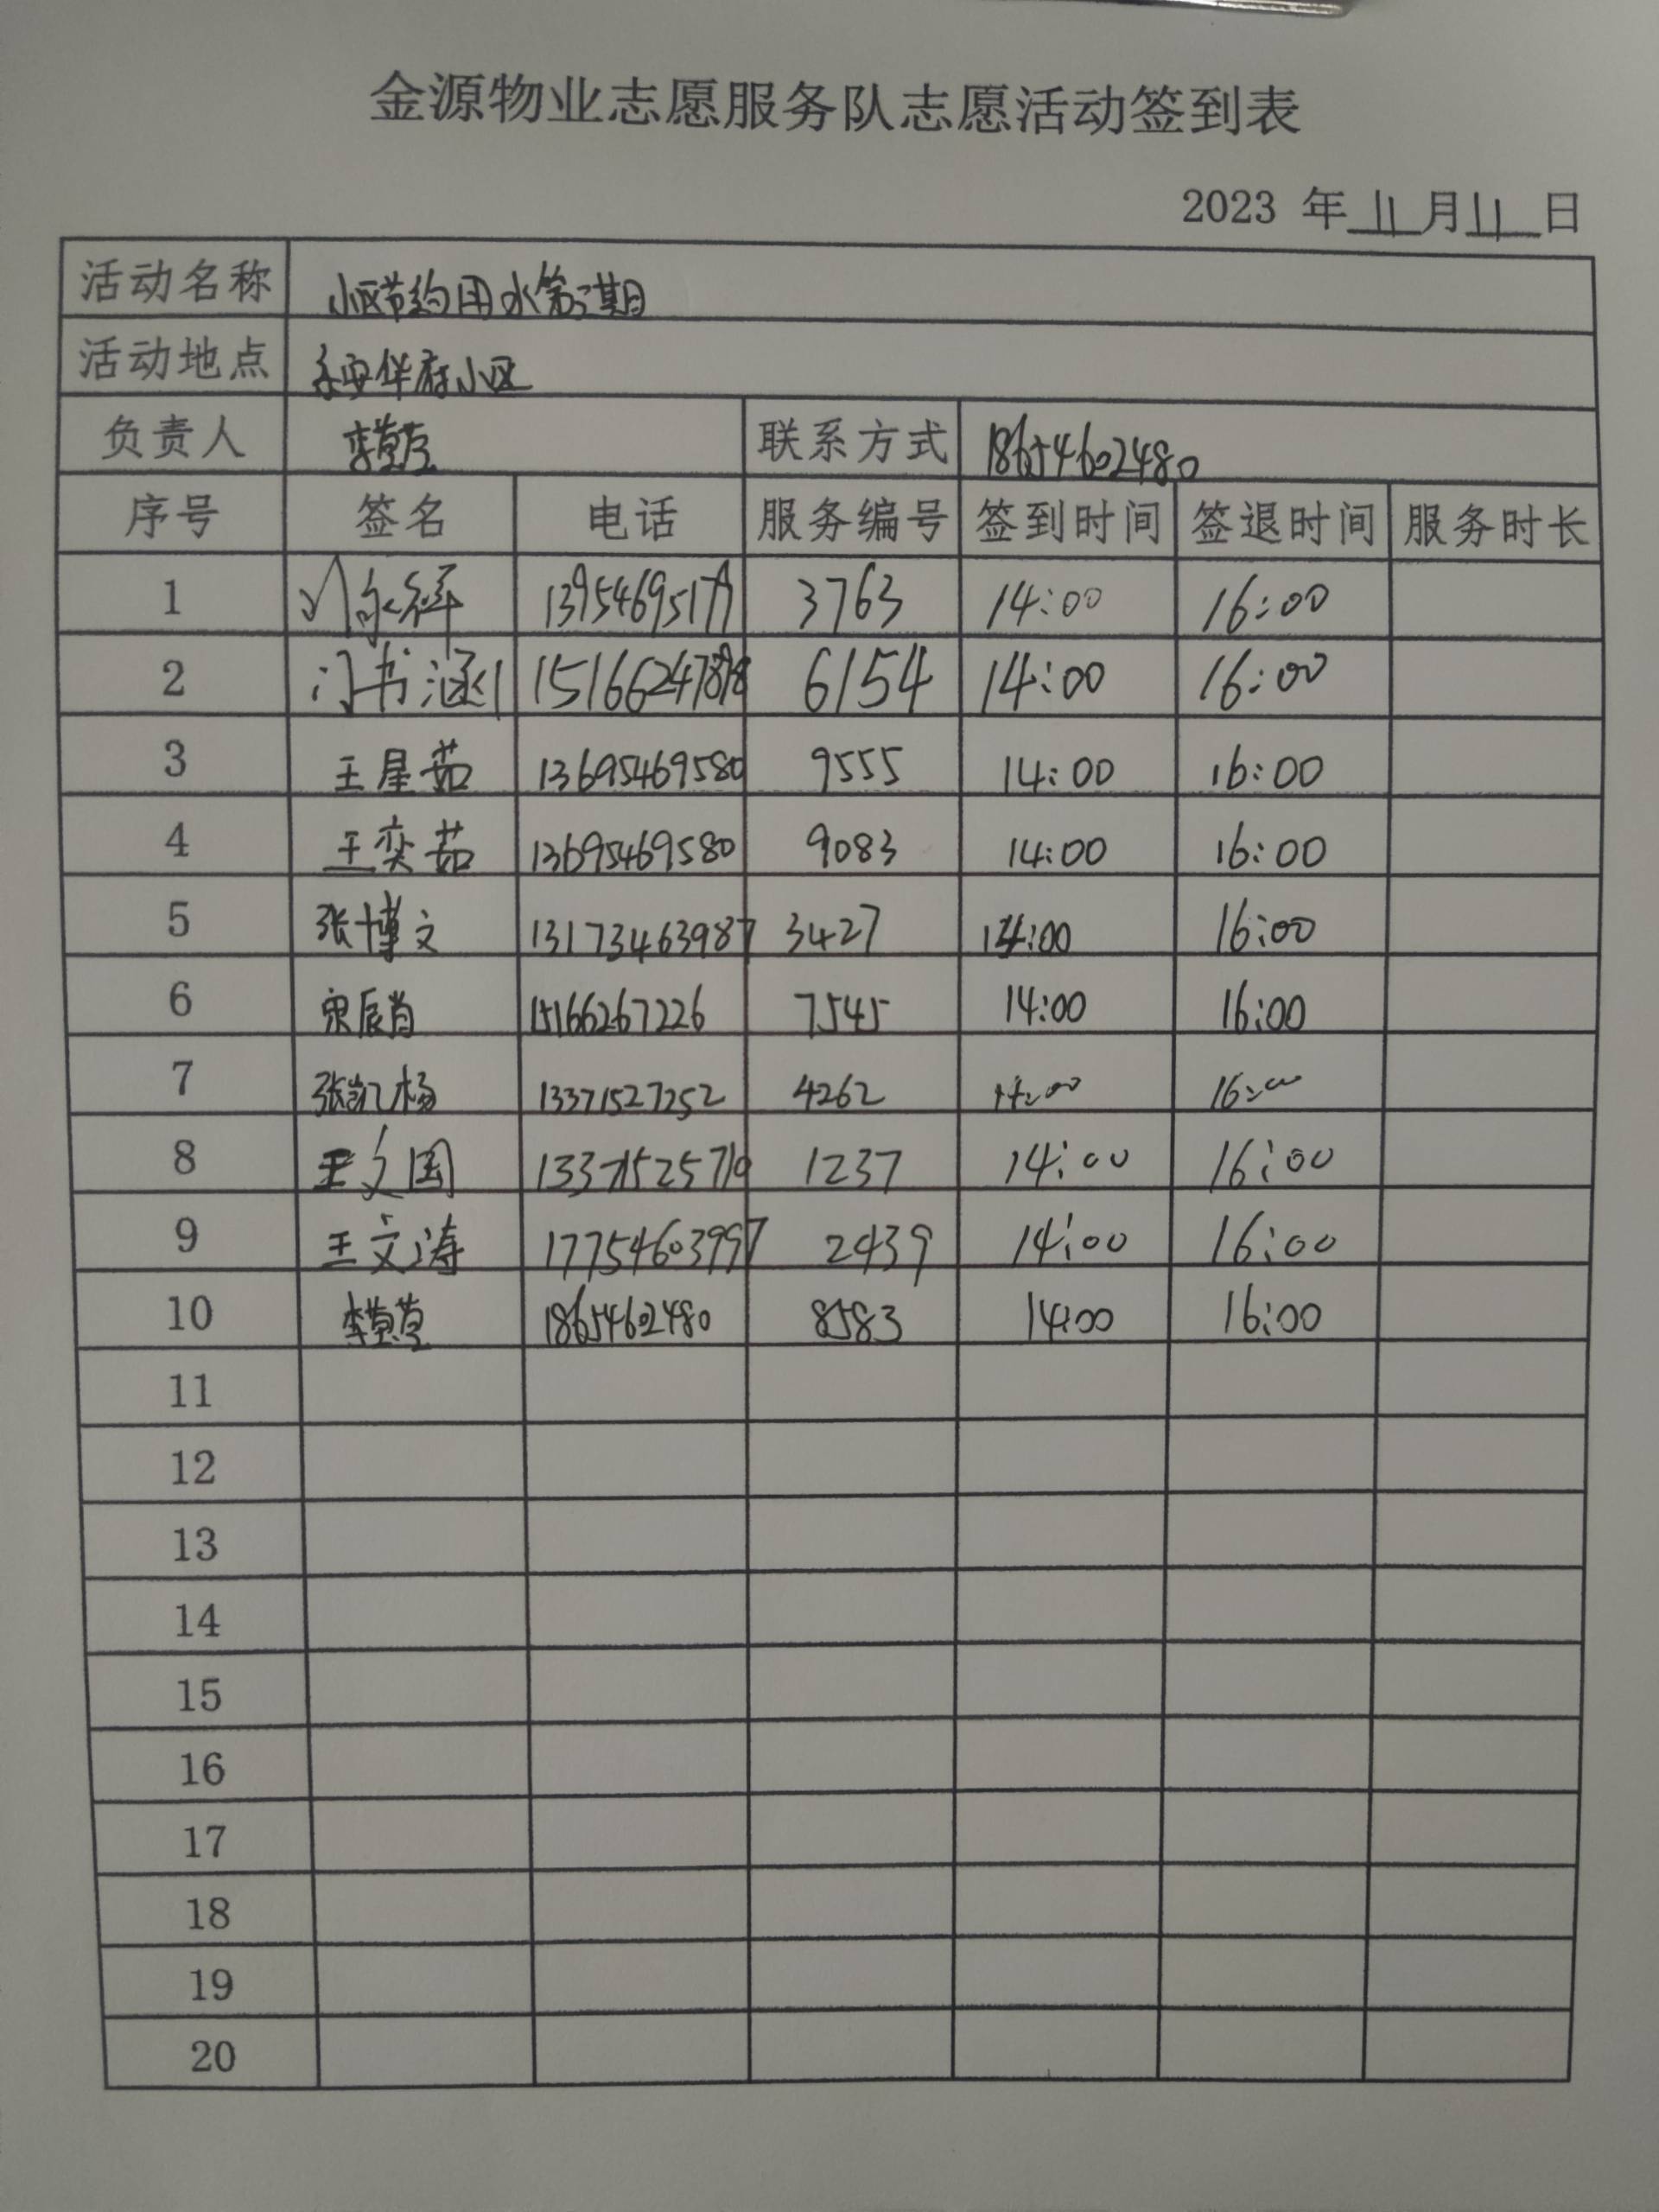 金源物业志愿服务队志愿活动签到表
2023 年 11 月 11 日
活动名称 小区节约用水第二期
活动地点 永安华府小区
负责人 李莫 联系方式 18654602480
序号 签名 电话 服务编号 签到时间 签退时间 服务时长
1 3763 14:00 16:00
2 门书涵 6154 14:00 16:00
3 王星茹 13695469580 9555 14:00 16:00
4 王奕茹 13695469580 9083 14:00 16:00
5 张博文 13173463987 3427 14:00 16:00
6 15166267226 7545 14:00 16:00
7 张凯杨 13371527252 4262 14:00 16:00
8 王文国 13371525710 1237 14:00 16:00
9 王文涛 17754603997 2439 14:00 16:00
10 18654602480 8583 14:00 16:00
11
12
13
14
15
16
17
18
19
20